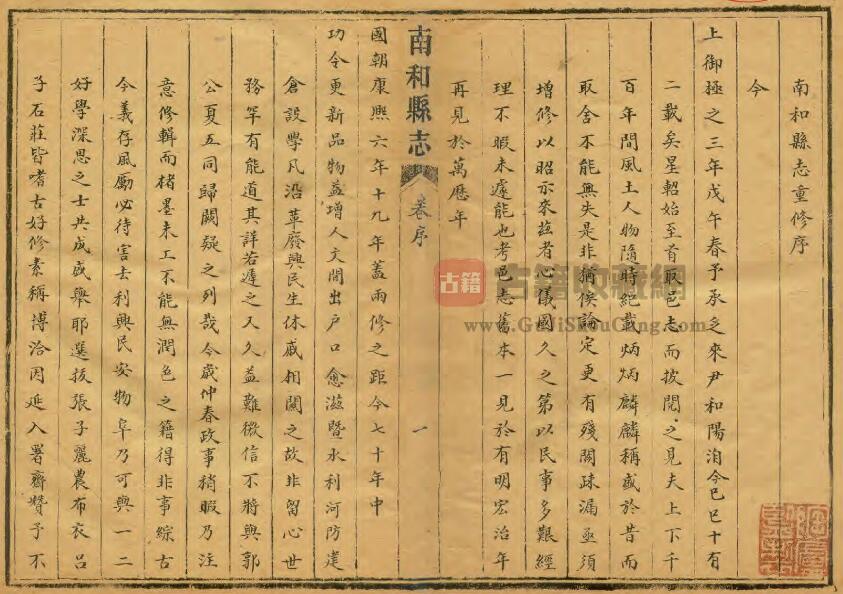 南和縣志重修序
今
上御極之三年戊午春予承乏來尹和陽洎今己巳十有
二載矣星軺始至首取邑志而披閱之見夫上下千
百年間風土人物隨時紀載炳炳麟麟稱盛於昔而
取舍不能無失是非猶俟論定更有殘闕疎漏亟須
增修以昭示來茲者心儀國久之第以民事多艱經
理不暇未遽能也考邑志舊本一見於有明宏治年
再見於萬歷年
南和縣志 卷序 一
國朝康熙六年十九年蓋兩修之距今七十年中
功令更新品物益增人文間出戶口愈滋暨水利河防建
倉設學凡沿革廢興民生休戚相關之故非留心世
務罕有能道其詳若遲之又久益難徵信不將與郭
公夏五同歸闕疑之列哉今歲仲春政事稍暇乃注
意修輯而楮墨未工不能無潤色之籍得非事綜古
今義存風厲必待害去利興民安物阜乃可與一二
好學深思之士共成盛舉耶選拔張子麗農布衣呂
子石莊皆嗜古好修素稱博洽因延入署齋贊予不
古籍 古籍收藏網
www.GuJiShouCang.com